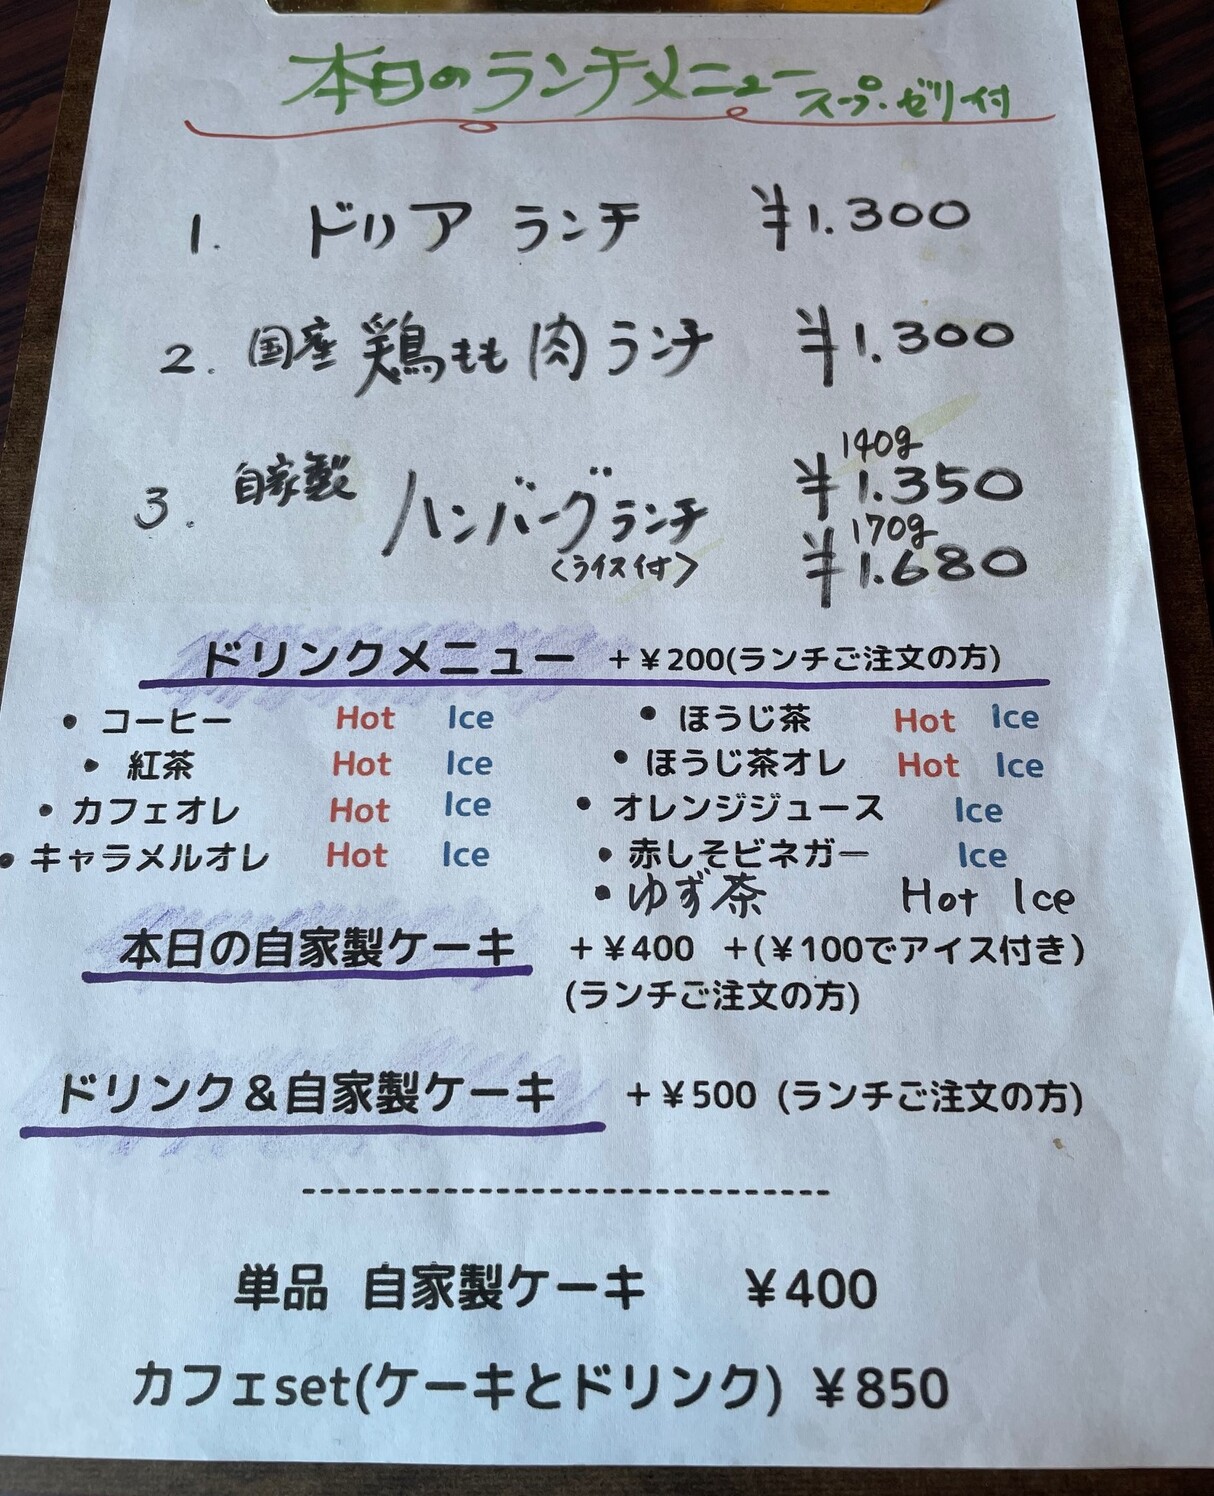 本日のランチメニュー スープ・ゼリー付
1. ドリア ランチ ¥1.300
2. 国産 鶏もも肉 ランチ ¥1.300
3. 自家製 ハンバーグ ランチ 140g ¥1.350
<ライス付> 170g ¥1.680
ドリンクメニュー +¥200(ランチご注文の方)
• コーヒー Hot Ice • ほうじ茶 Hot Ice
• 紅茶 Hot Ice • ほうじ茶オレ Hot Ice
• カフェオレ Hot Ice • オレンジジュース Ice
• キャラメルオレ Hot Ice • 赤しそビネガー Ice
• ゆず茶 Hot Ice
本日の自家製ケーキ +¥400 +(¥100でアイス付き)
(ランチご注文の方)
ドリンク&自家製ケーキ +¥500 (ランチご注文の方)
-----------------------------
単品 自家製ケーキ ¥400
カフェset(ケーキとドリンク) ¥850